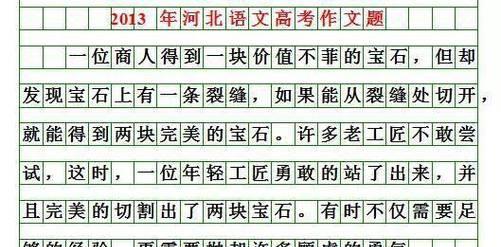 2013 年河北语文高考作文题
一位商人得到一块价值不菲的宝石，但却
发现宝石上有一条裂缝，如果能从裂缝处切开，
就能得到两块完美的宝石。许多老工匠不敢尝
试，这时，一位年轻工匠勇敢的站了出来，并
且完美的切割出了两块宝石。有时不仅需要足
够的经验，更需要抛却许多顾虑的勇气